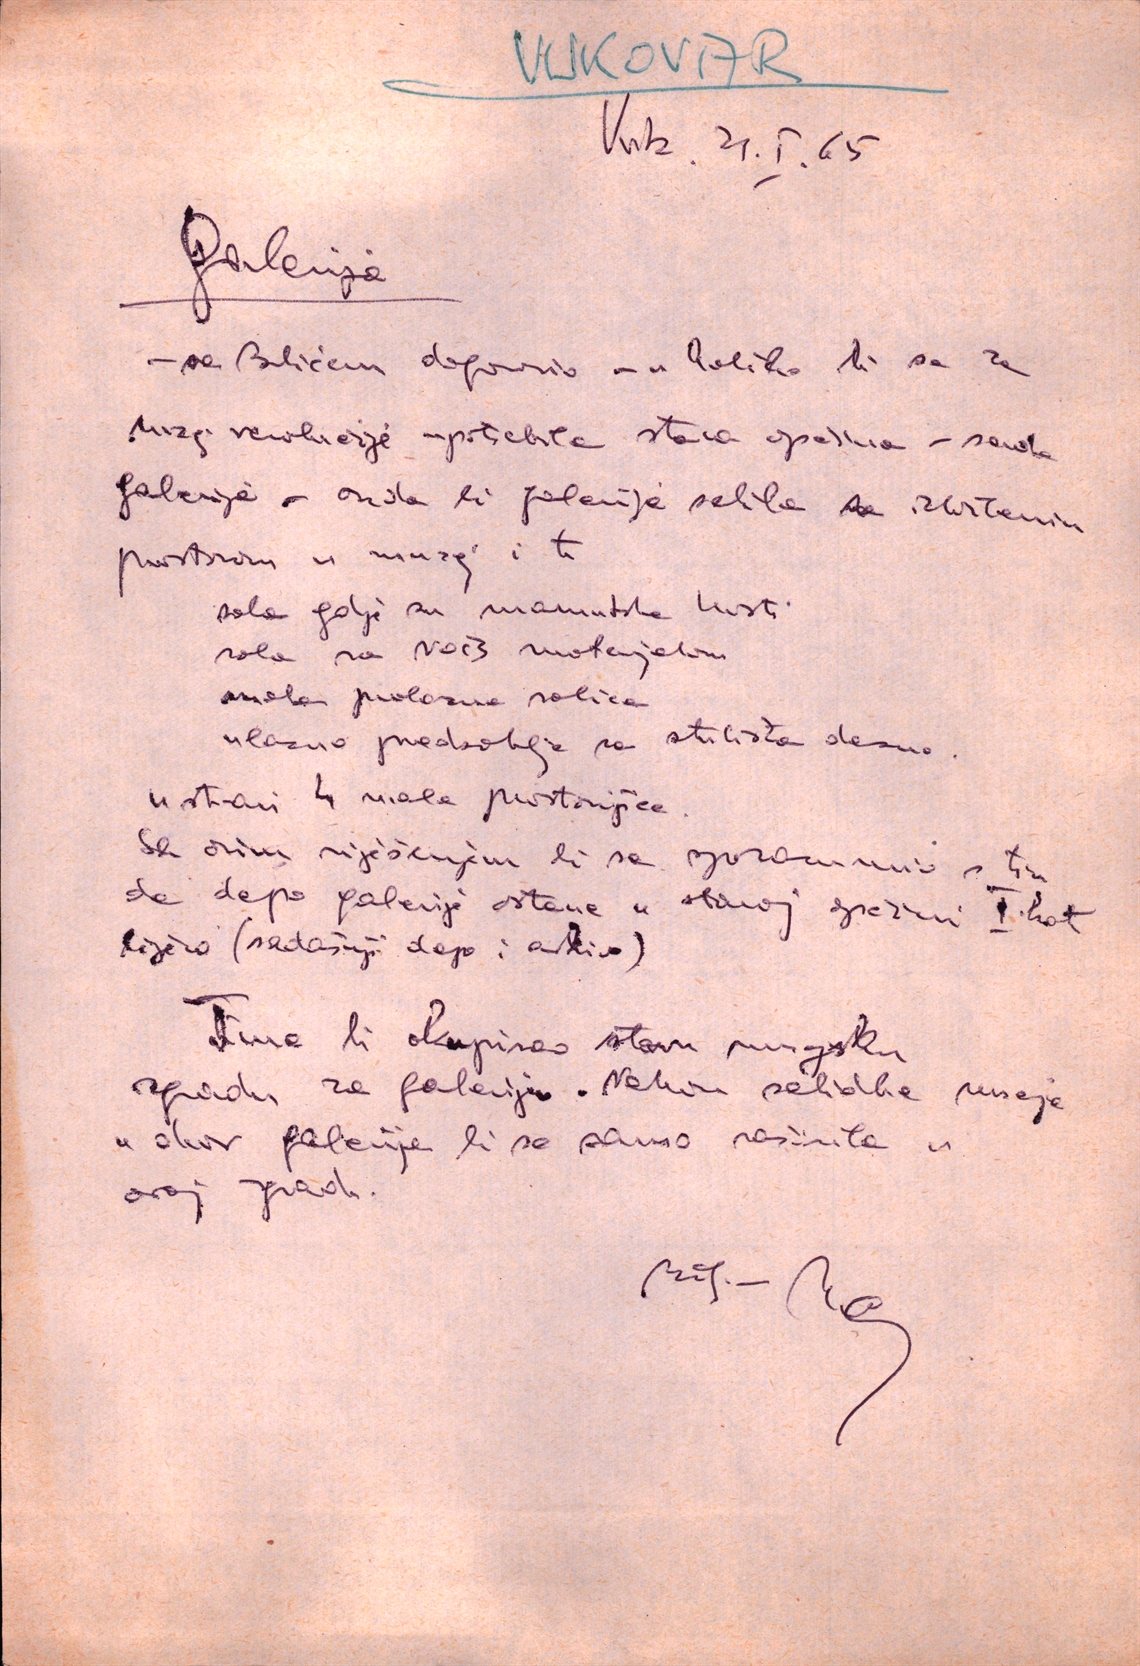 VUKOVAR
Vuk. 21.I.65
Galerija
- sa Bilićem dogovorio - u koliko bi se za
muzej revolucije upotrebila stara općina - sada
galerija - onda bi galerija selila sa izložbenim
prostorom u muzej i to
sala gdje su mamutske kosti
sala sa NOB materijalom
mala prolazna salica
ulazno predsoblje sa stubišta desno.
u stvari 4 male prostorijice.
Sa ovim riješenjem bi se sporazumio s tim
da depo galerije ostane u staroj općini I kat
lijevo (sadašnji depo i arhiv)
Time bi okupirao staru muzejsku
zgradu za galeriju. Nakon selidbe muzeja
u dvor galerija bi se samo raširila u
ovoj zgradi.